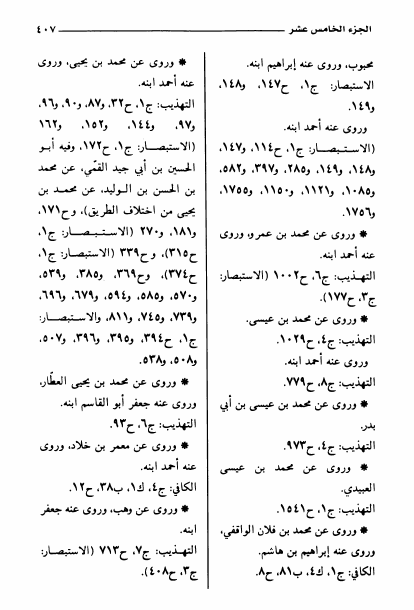 الجزء الخامس عشر
٤٠٧
محبوب، وروى عنه إبراهيم ابنه.
الاستبصار: ج١، ح١٤٧، و١٤٨،
و١٤٩.
وروى عنه أحمد ابنه.
(الاستبصار: ج١، ح١١٤، و١٤٧،
و١٤٨، و١٤٩، و٢٨٥، و٣٩٧، و٥٨٢،
و١٠٨٥، و١١٢١، و١١٥٠، و١٧٥٥،
و١٧٥٦.
* وروى عن محمد بن عمرو، وروى
عنه أحمد ابنه.
التهذيب: ج٦، ح١٠٠٢ (الاستبصار:
ج٣، ح١٧٧).
* وروى عن محمد بن عيسى.
التهذيب: ج٤، ح١٠٢٩.
وروى عنه أحمد ابنه.
التهذيب: ج٨، ح٧٧٩.
* وروى عن محمد بن عيسى بن أبي
بدر.
التهذيب: ج٤، ح٩٧٣.
* وروى عن محمد بن عيسى
العبيدي.
التهذيب: ج١، ح١٥٤١.
* وروى عن محمد بن فلان الواقفي،
وروى عنه إبراهيم بن هاشم.
الكافي: ج١، ك٤، ب٨١، ح٨.
* وروى عن محمد بن يحيى، وروى
عنه أحمد ابنه.
التهذيب: ج١، ح٣٢، و٨٧، و٩٠، و٩٦،
و٩٧، و١٤٤، و١٥٢، و١٦٢
(الاستبصار: ج١، ح١٧٢، وفيه أبو
الحسين بن أبي جيد القمّي، عن محمد
بن الحسن بن الوليد، عن محمد بن
يحيى من اختلاف الطريق)، وح١٧١،
و١٨١، و٢٧٠ (الاستبصار: ج١،
ح٣١٥)، وح٣٣٩ (الاستبصار: ج١،
ح٣٧٤)، وح٣٦٩، و٣٨٥، و٥٣٩،
و٥٧٠، و٥٨٥، و٥٩٤، و٦٧٩، و٦٩٦،
و٧٣٩، و٧٤٥، و٨١١، والاستبصار:
ج١، ح٣٩٤، و٣٩٥، و٣٩٦، و٥٠٧،
و٥٠٨، و٥٣٨.
* وروى عن محمد بن يحيى العطّار،
وروى عنه جعفر أبو القاسم ابنه.
التهذيب: ج٦، ح٩٣.
* وروى عن معمر بن خلاد، وروى
عنه أحمد ابنه.
الكافي: ج٤، ك١، ب٣٨، ح١٢.
* وروى عن وهب، وروى عنه جعفر
ابنه.
التهذيب: ج٧، ح٧١٣ (الاستبصار:
ج٣، ح٤٠٨).